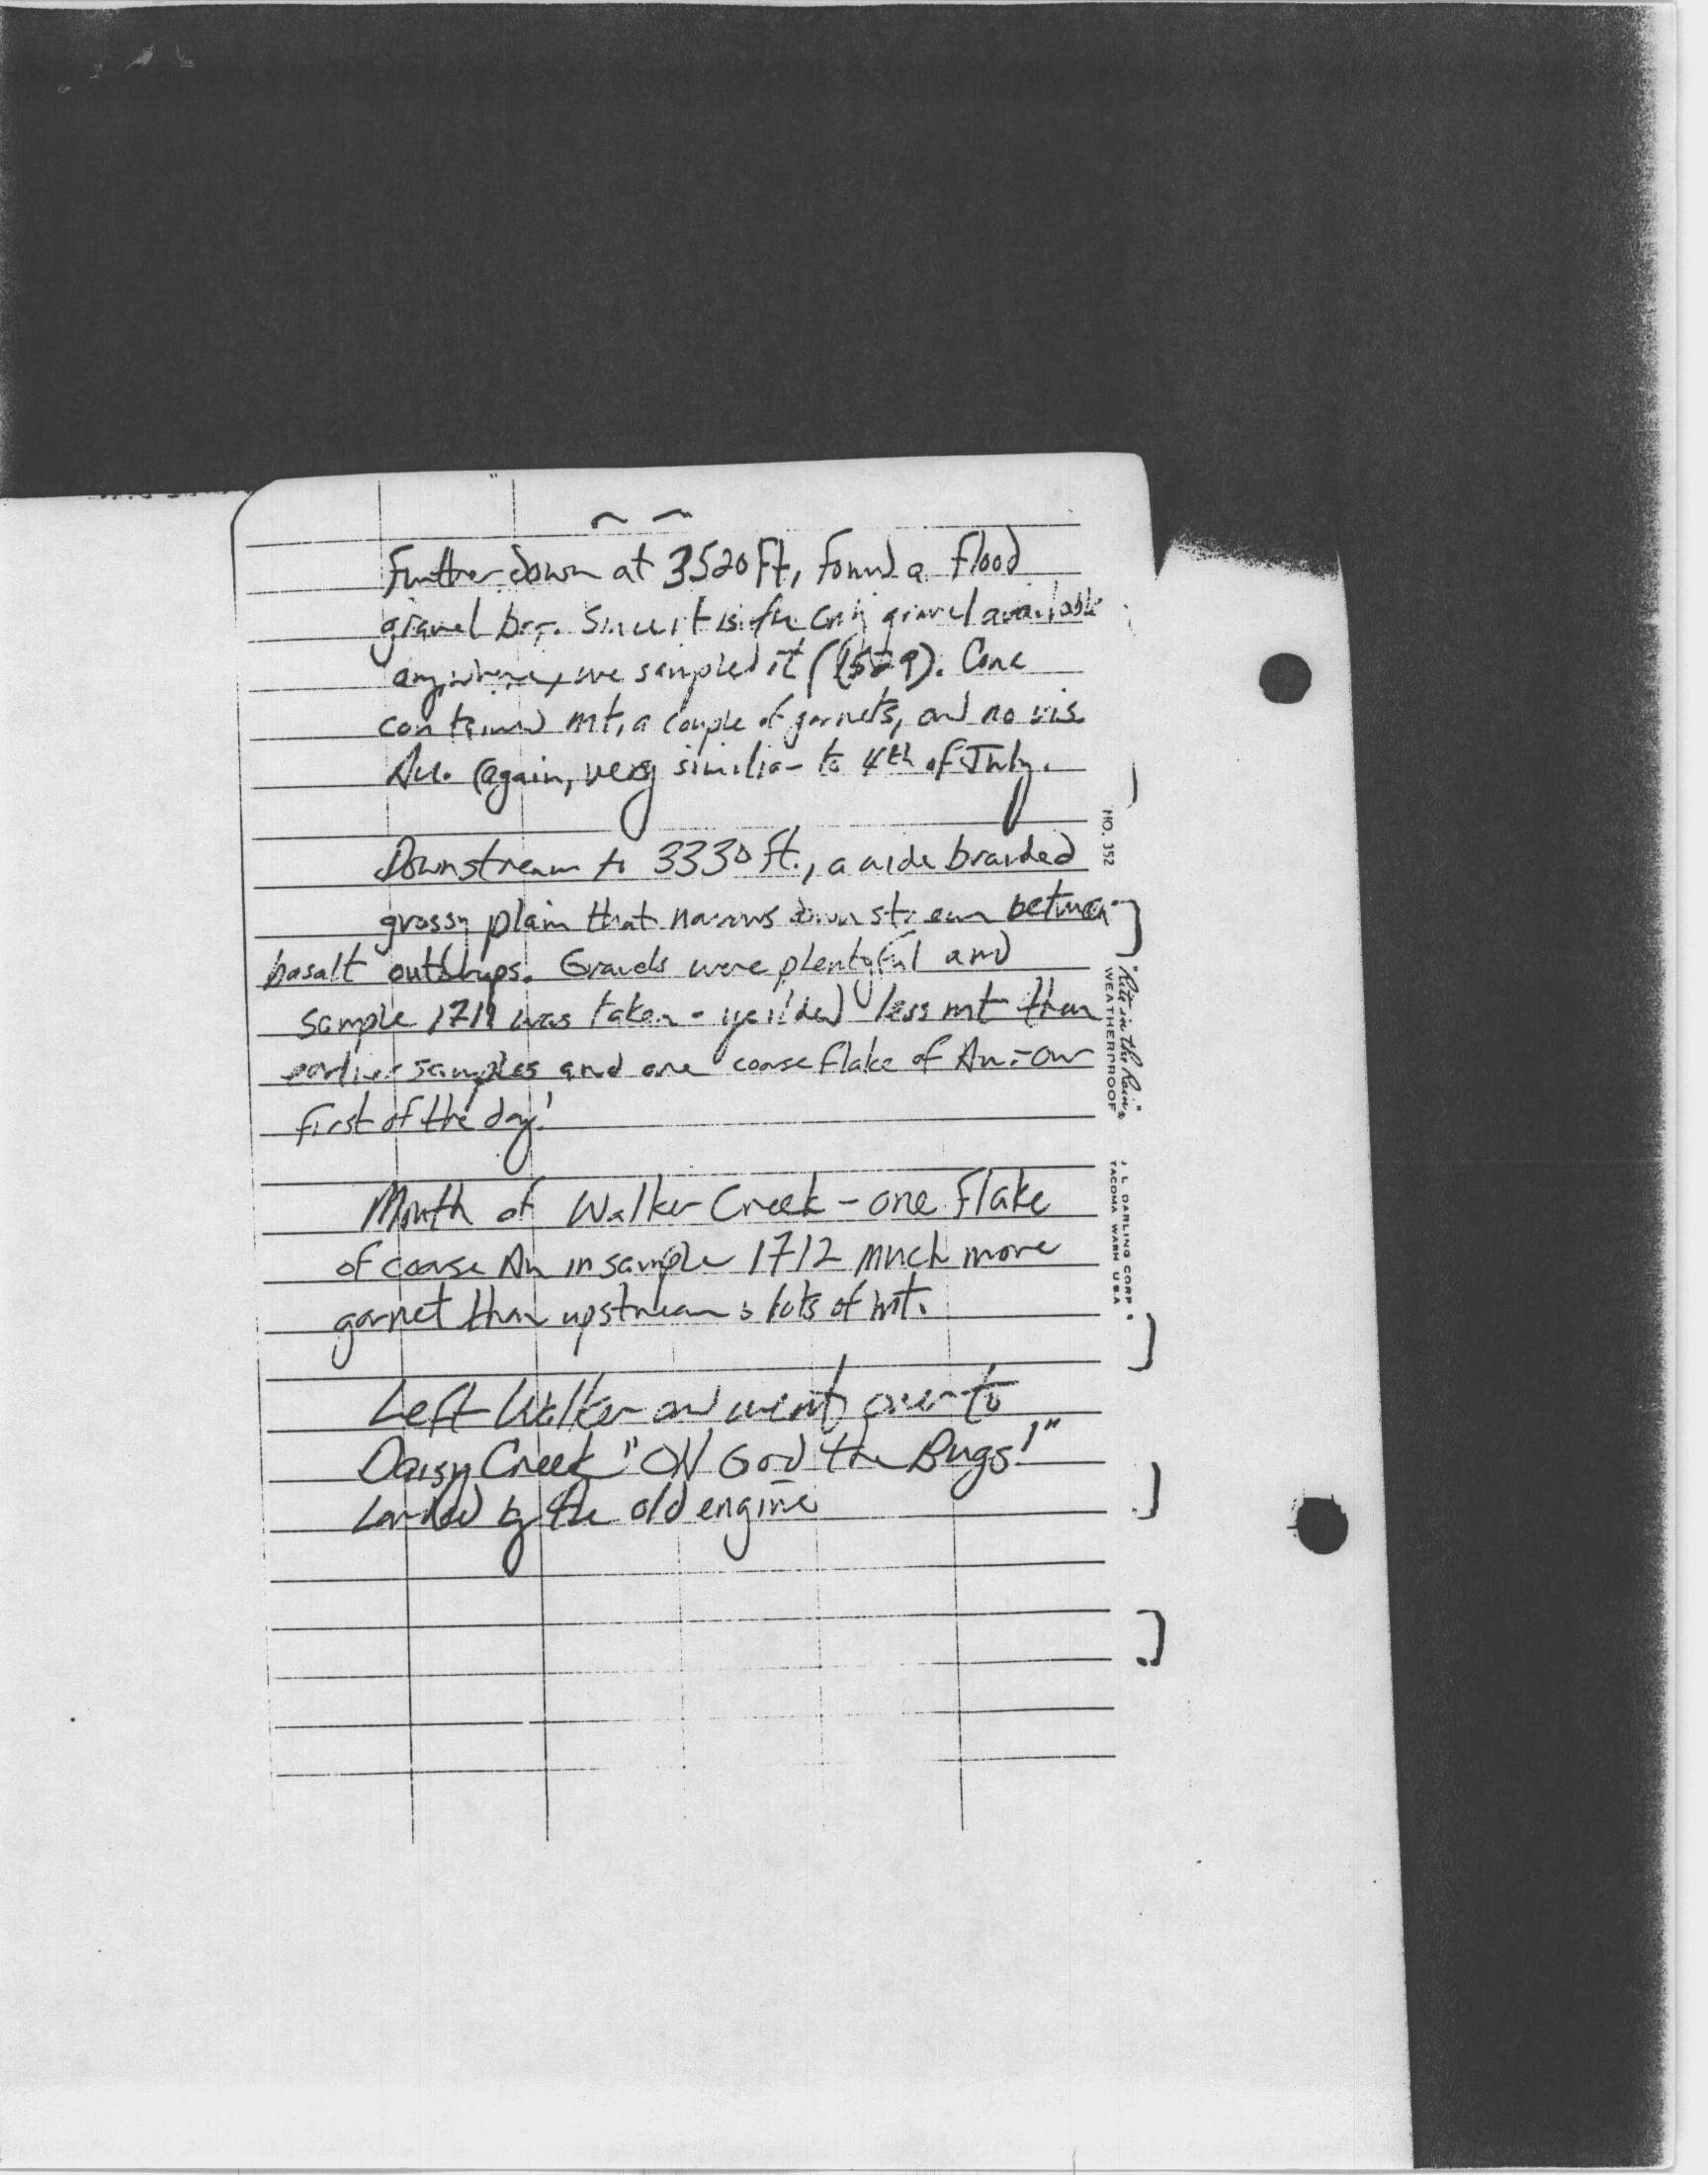 Further down at 3520 ft, found a flood
gravel bar. Since it is the only gravel available
anywhere, we sampled it (1529). Conc
contained mt, a couple of garnets, and no vis
Au. Again, very similiar to 4th of July.
Downstream to 3330 ft., a wide braided
grassy plain that narrows downstream between
basalt outcrops. Gravels were plentyful and
sample 1711 was taken - yeilded less mt than
earlier samples and one coarse flake of Au - our
first of the day!
Mouth of Walker Creek - one flake
of coarse Au in sample 1712 much more
garnet than upstream & lots of mt.
Left Walker and went over to
Daisy Creek "Oh God the Bugs!"
Landed by the old engine
NO. 352
"Rite in the Rain"
WEATHERPROOF
J. L. DARLING CORP.
TACOMA WASH USA